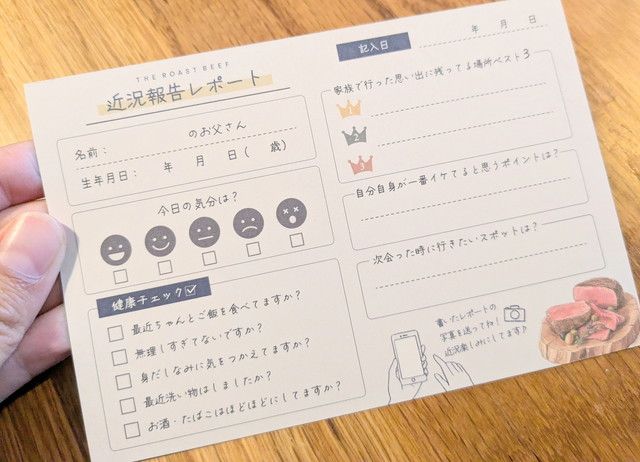 THE ROAST BEEF
近況報告レポート
名前： のお父さん
生年月日： 年 月 日( 歳)
今日の気分は？
健康チェック
最近ちゃんとご飯を食べてますか？
無理しすぎてないですか？
身だしなみに気をつかえてますか？
最近洗い物はしましたか？
お酒・たばこはほどほどにしてますか？
記入日 年 月 日
家族で行った思い出に残ってる場所ベスト3
1
2
3
自分自身が一番イケてると思うポイントは？
次会った時に行きたいスポットは？
書いたレポートの
写真を送ってね！
近況楽しみにしてます♪